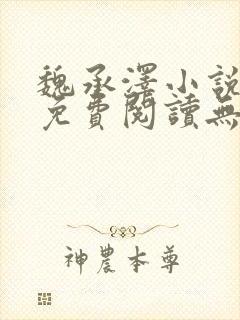 魏承澤小說
免費閱讀無
神農本尊